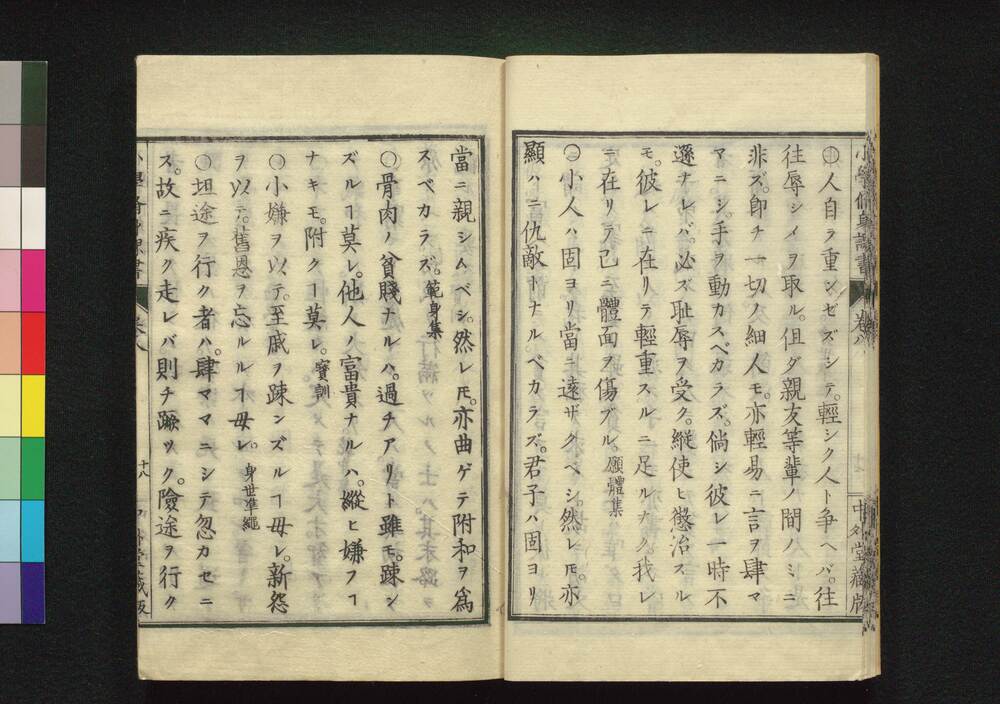 小學修身課書 卷八 中外堂藏版
〇人自ラ重ンゼズシテ。輕シク人ト爭ヘバ。往
往辱シメヲ取ル。但ダ親友等輩ノ間ノミニ
非ズ。卽チ一切ノ細人モ。亦輕易ニ言ヲ肆マ
マニシ。手ヲ動カスベカラズ。倘シ彼レ一時不
遜ナレバ。必ズ恥辱ヲ受ク。縱使ヒ懲治スル
モ。彼レニ在リテ輕重スルニ足ルナク。我レ
ニ在リテ己ニ體面ヲ傷ブル。願體集
〇小人ハ固ヨリ當ニ遠ザクベシ。然レ𪜈。亦
顯ハニ仇敵トナルベカラズ。君子ハ固ヨリ
當ニ親シムベシ。然レ𪜈。亦曲ゲテ附和ヲ爲
スベカラズ。範身集
〇骨肉ノ貧賤ナルハ。過チアリト雖モ。踈ン
ズルヿ莫レ。他人ノ富貴ナルハ。縱ヒ嫌フヿ
ナキモ。附クヿ莫レ。寳訓
〇小嫌ヲ以テ。至戚ヲ踈ンズルヿ毋レ。新怨
ヲ以テ。舊恩ヲ忘ルルヿ毋レ。身世準繩
〇坦途ヲ行ク者ハ。肆ママニシテ忽カセニ
ス。故ニ疾ク走レバ則チ蹶ツク。險途ヲ行ク
十八